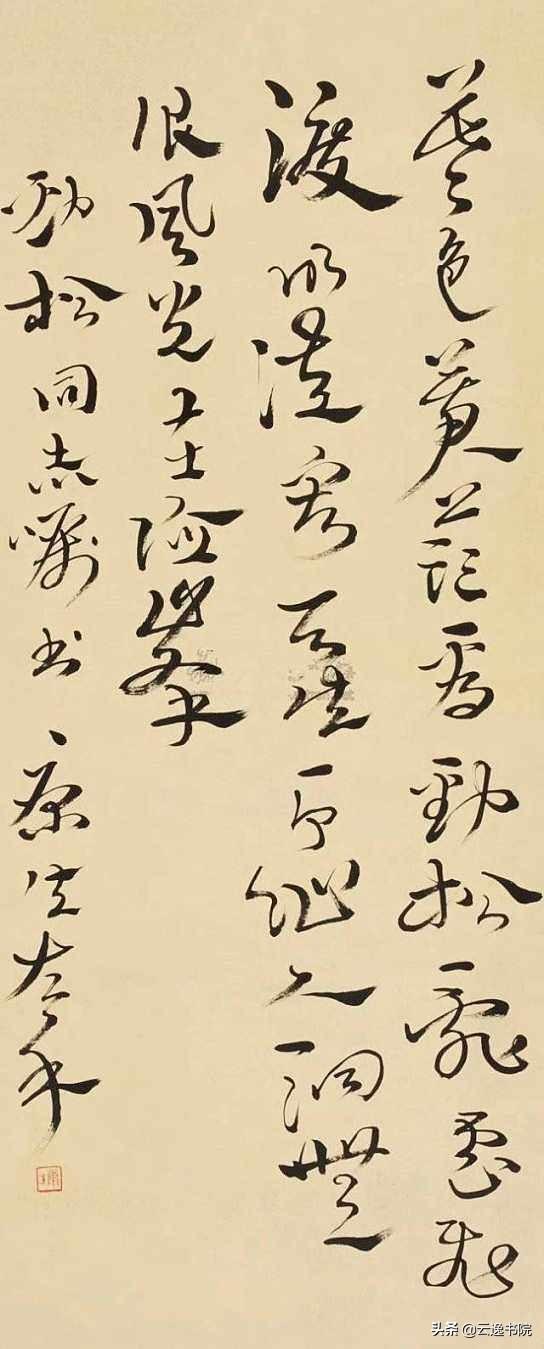 暮色蒼茫看勁松亂雲飛
渡仍從容天生一个仙人洞無
限風光在險峯
勁松同志嘱书 康生左手
头条 @云逸书院